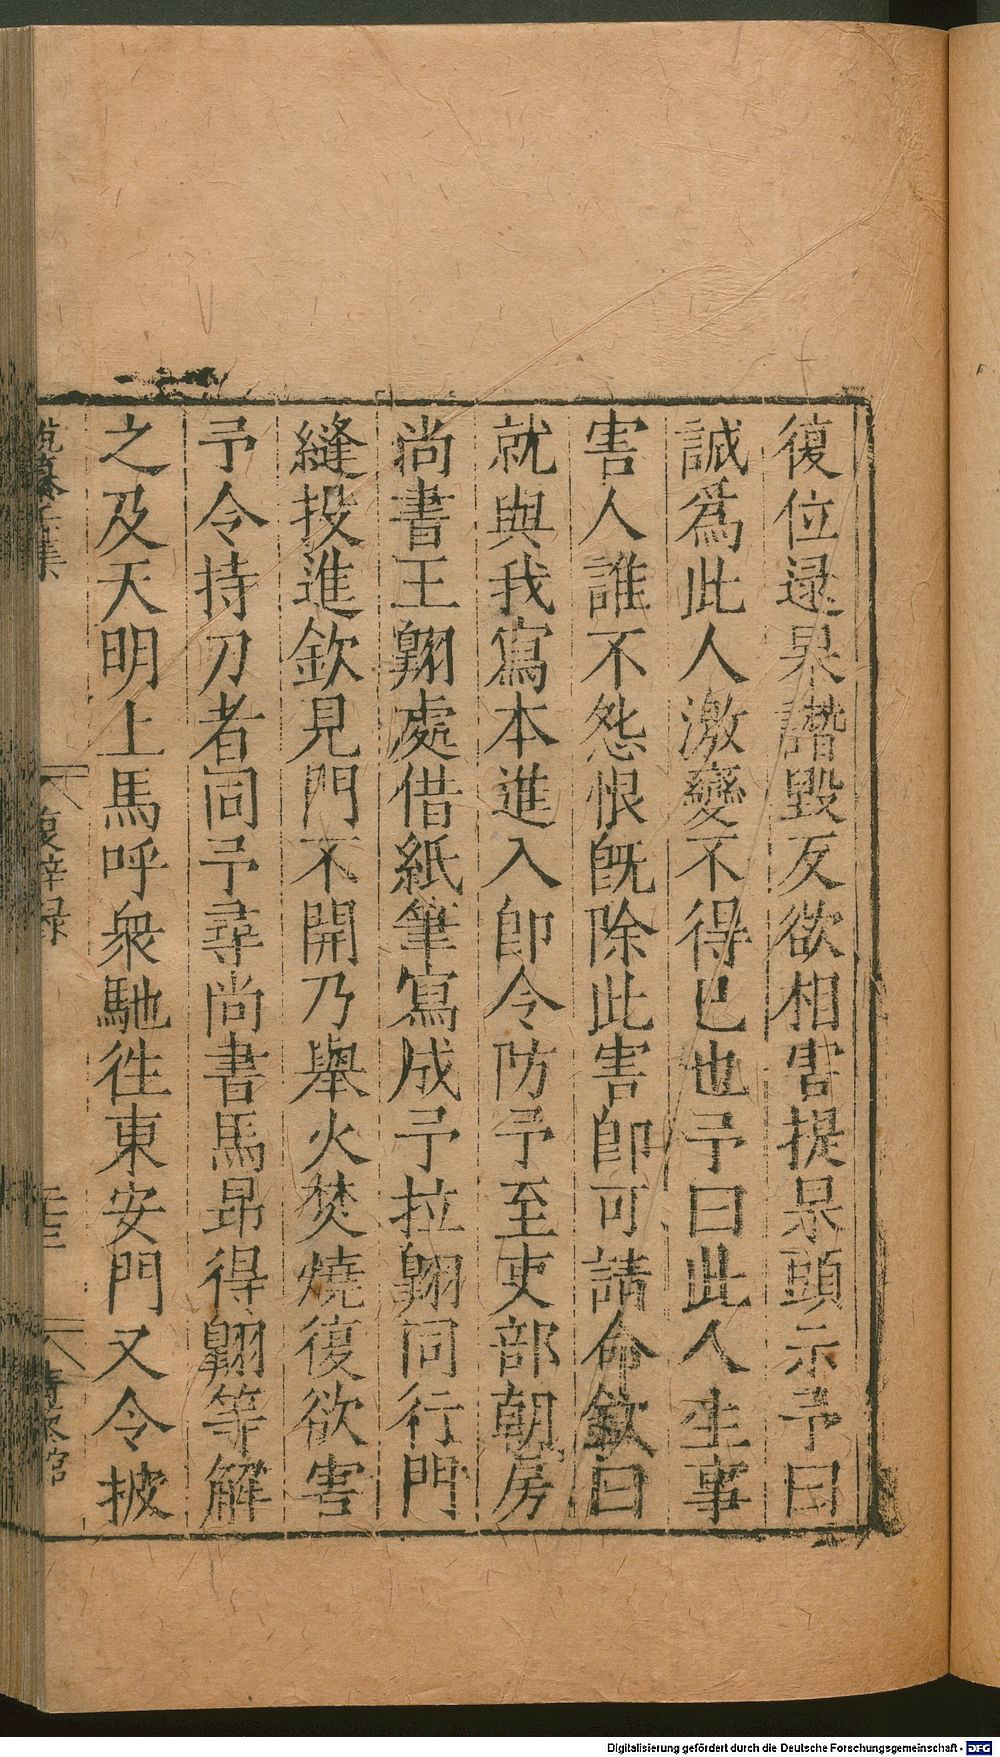 復位逯杲譖毀反欲相害提杲頭示予曰
誠爲此人激變不得已也予曰此人生事
害人誰不怨恨旣除此害卽可請命欽曰
就與我寫本進入卽令防予至吏部朝房
尚書王翺處借紙筆寫成予拉翺同行門
縫投進欽見門不開乃舉火焚燒復欲害
予令持刀者同予尋尚書馬昻得翺等解
之及天明上馬呼衆馳徃東安門又令披
復辟録
Digitalisierung gefördert durch die Deutsche Forschungsgemeinschaft - DFG